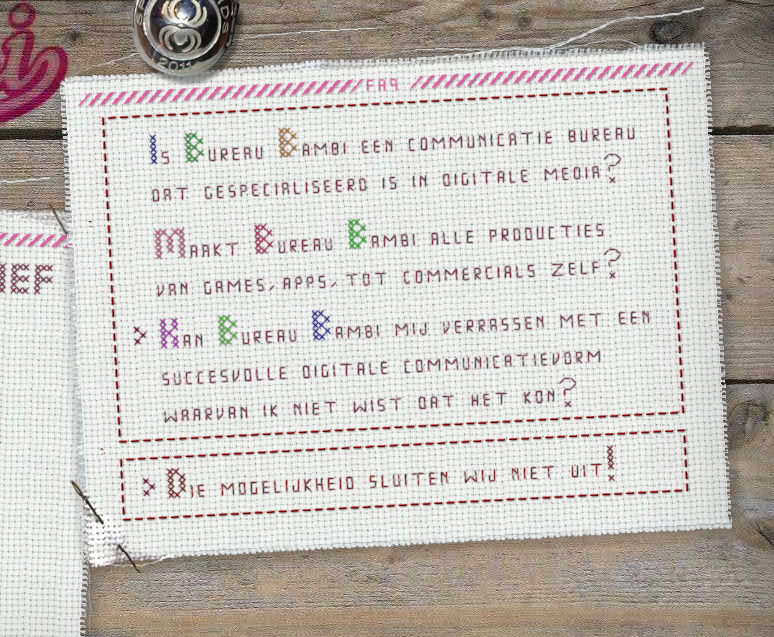 2011
FAQ
Is Bureau Bambi een communicatie bureau
dat gespecialiseerd is in digitale media?
Maakt Bureau Bambi alle producties
van games, apps, tot commercials zelf?
> Kan Bureau Bambi mij verrassen met een
succesvolle digitale communicatievorm
waarvan ik niet wist dat het kon?
> Die mogelijkheid sluiten wij niet uit!